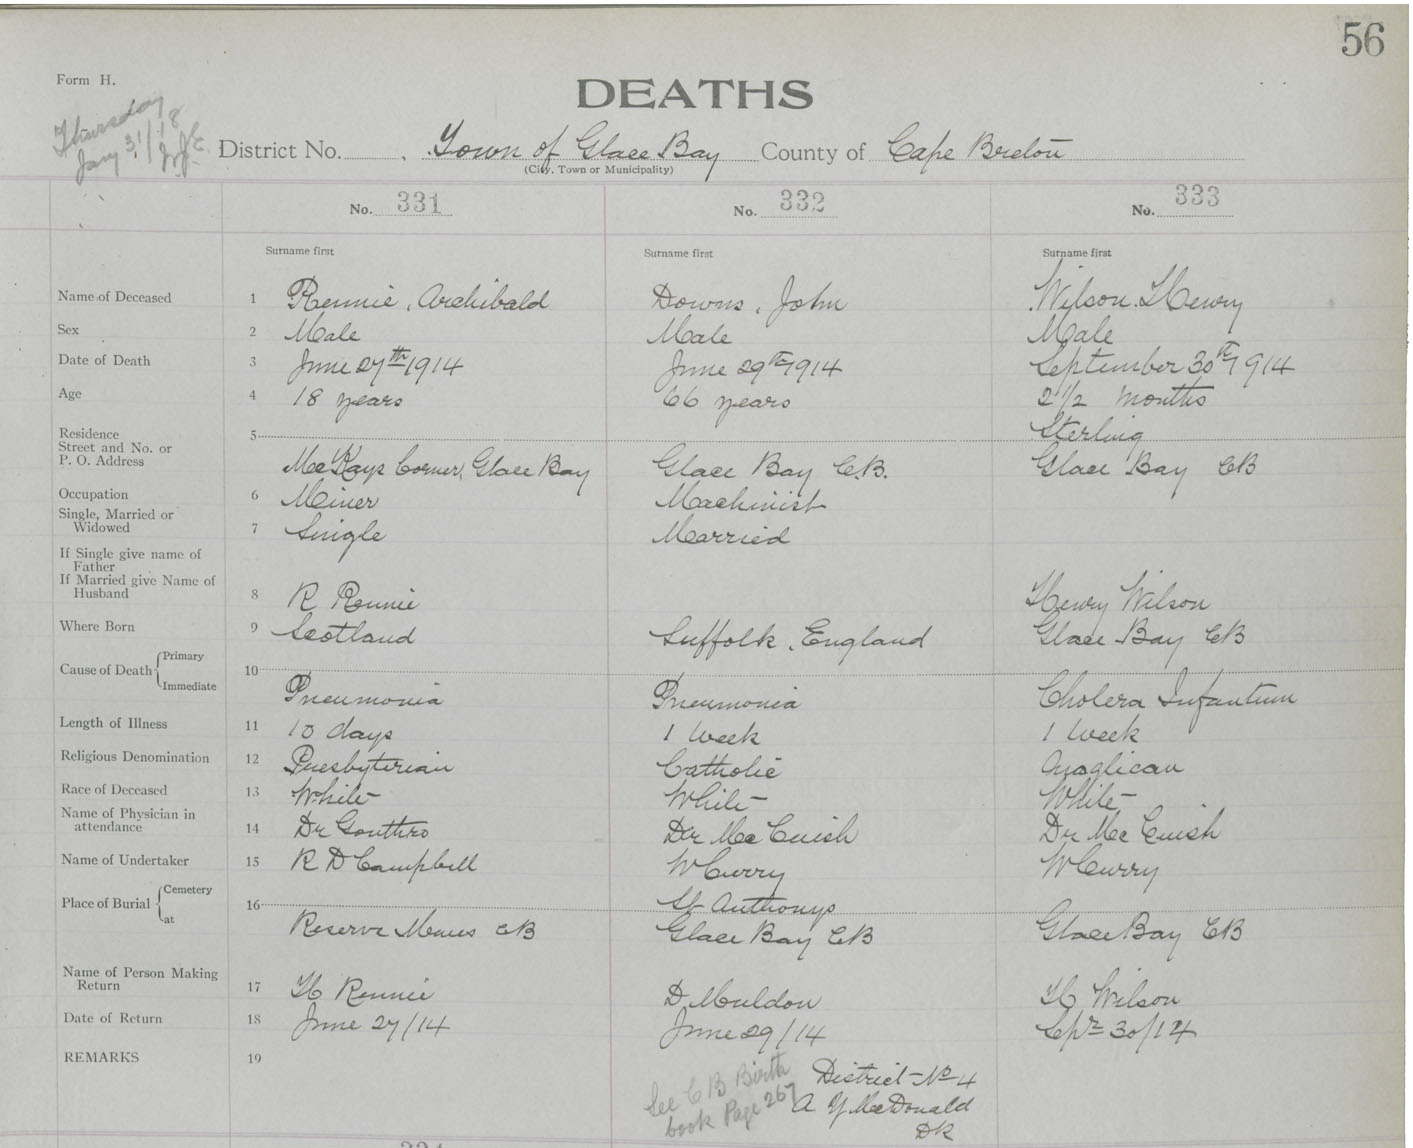 56
Form H.
DEATHS
Thursday
Jany 31/18
District No. Town of Glace Bay County of Cape Breton
(City, Town or Municipality)
No. 331 No. 332 No. 333
Surname first Surname first Surname first
Name of Deceased 1 Rennie, Archibald Downs, John Wilson, Henry
Sex 2 Male Male Male
Date of Death 3 June 27th 1914 June 29th 1914 September 30th 1914
Age 4 18 years 66 years 2 1/2 months
Residence 5 Sterling
Street and No. or
P. O. Address McKays Corner, Glace Bay Glace Bay C.B. Glace Bay CB
Occupation 6 Miner Machinist
Single, Married or
Widowed 7 Single Married
If Single give name of
Father
If Married give Name of
Husband 8 R Rennie Henry Wilson
Where Born 9 Scotland Suffolk, England Glace Bay CB
Cause of Death Primary 10
Immediate Pneumonia Pneumonia Cholera Infantum
Length of Illness 11 10 days 1 Week 1 Week
Religious Denomination 12 Presbyterian Catholic Anglican
Race of Deceased 13 White White White
Name of Physician in
attendance 14 Dr Gouthro Dr McCuish Dr McCuish
Name of Undertaker 15 R D Campbell W Curry W Curry
Place of Burial Cemetery 16 St Anthonys
at Reserve Mines CB Glace Bay CB Glace Bay CB
Name of Person Making
Return 17 H Rennie D Muldon H Wilson
Date of Return 18 June 27/14 June 29/14 Sept 30/14
REMARKS 19
See C B Birth
book Page 267
District No 4
A Y McDonald